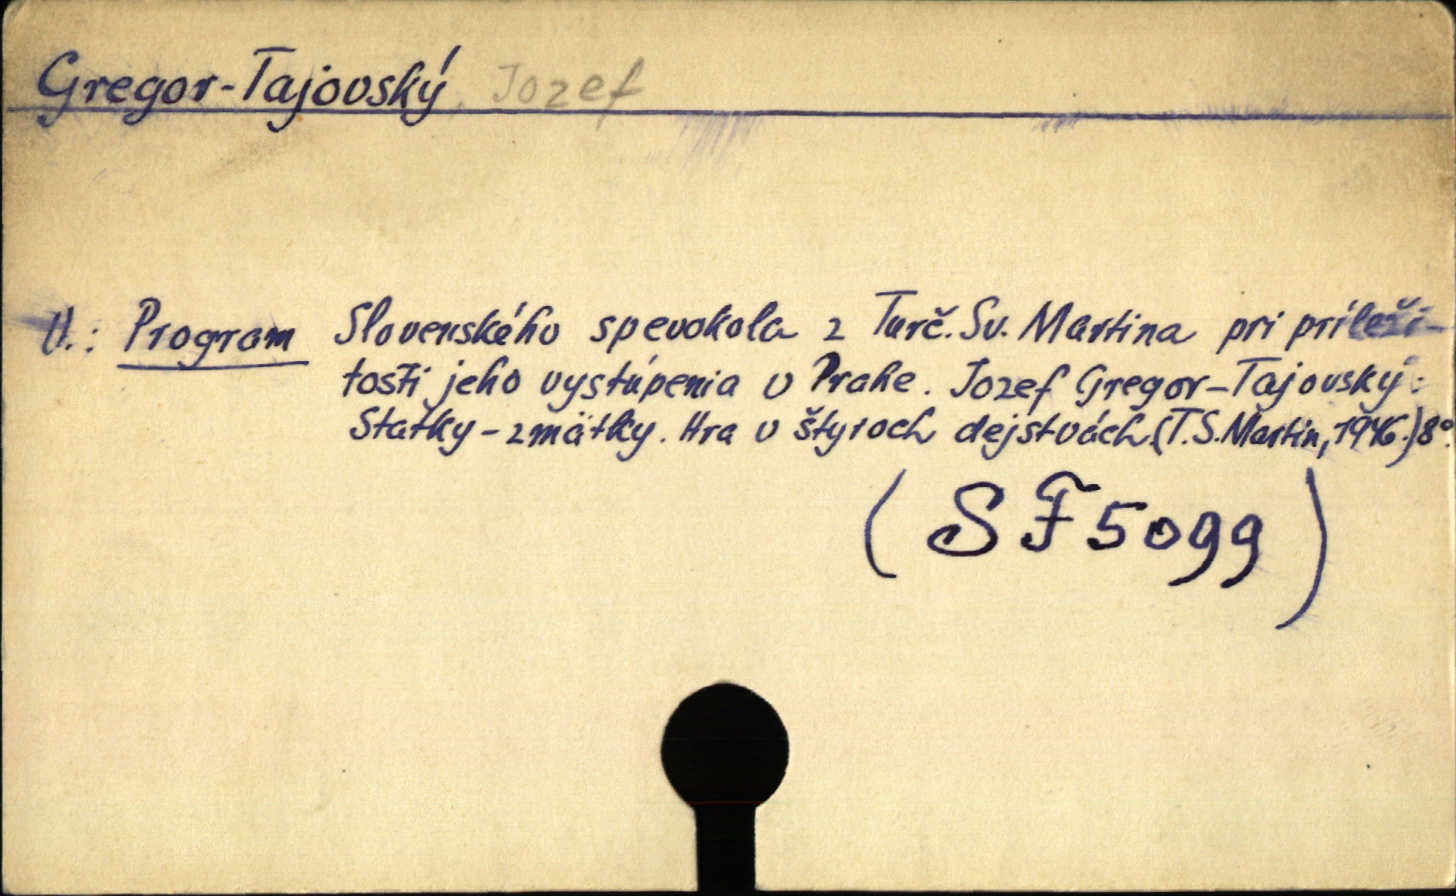 Gregor-Tajovský, Jozef
V.: Program Slovenského spevokola z Turč. Sv. Martina pri príleži-
tosti jeho vystúpenia v Prahe. Jozef Gregor-Tajovský:
Statky-zmätky. Hra v štyroch dejstvách. (T.S. Martin, 1946.) 8°.
(SF5099)